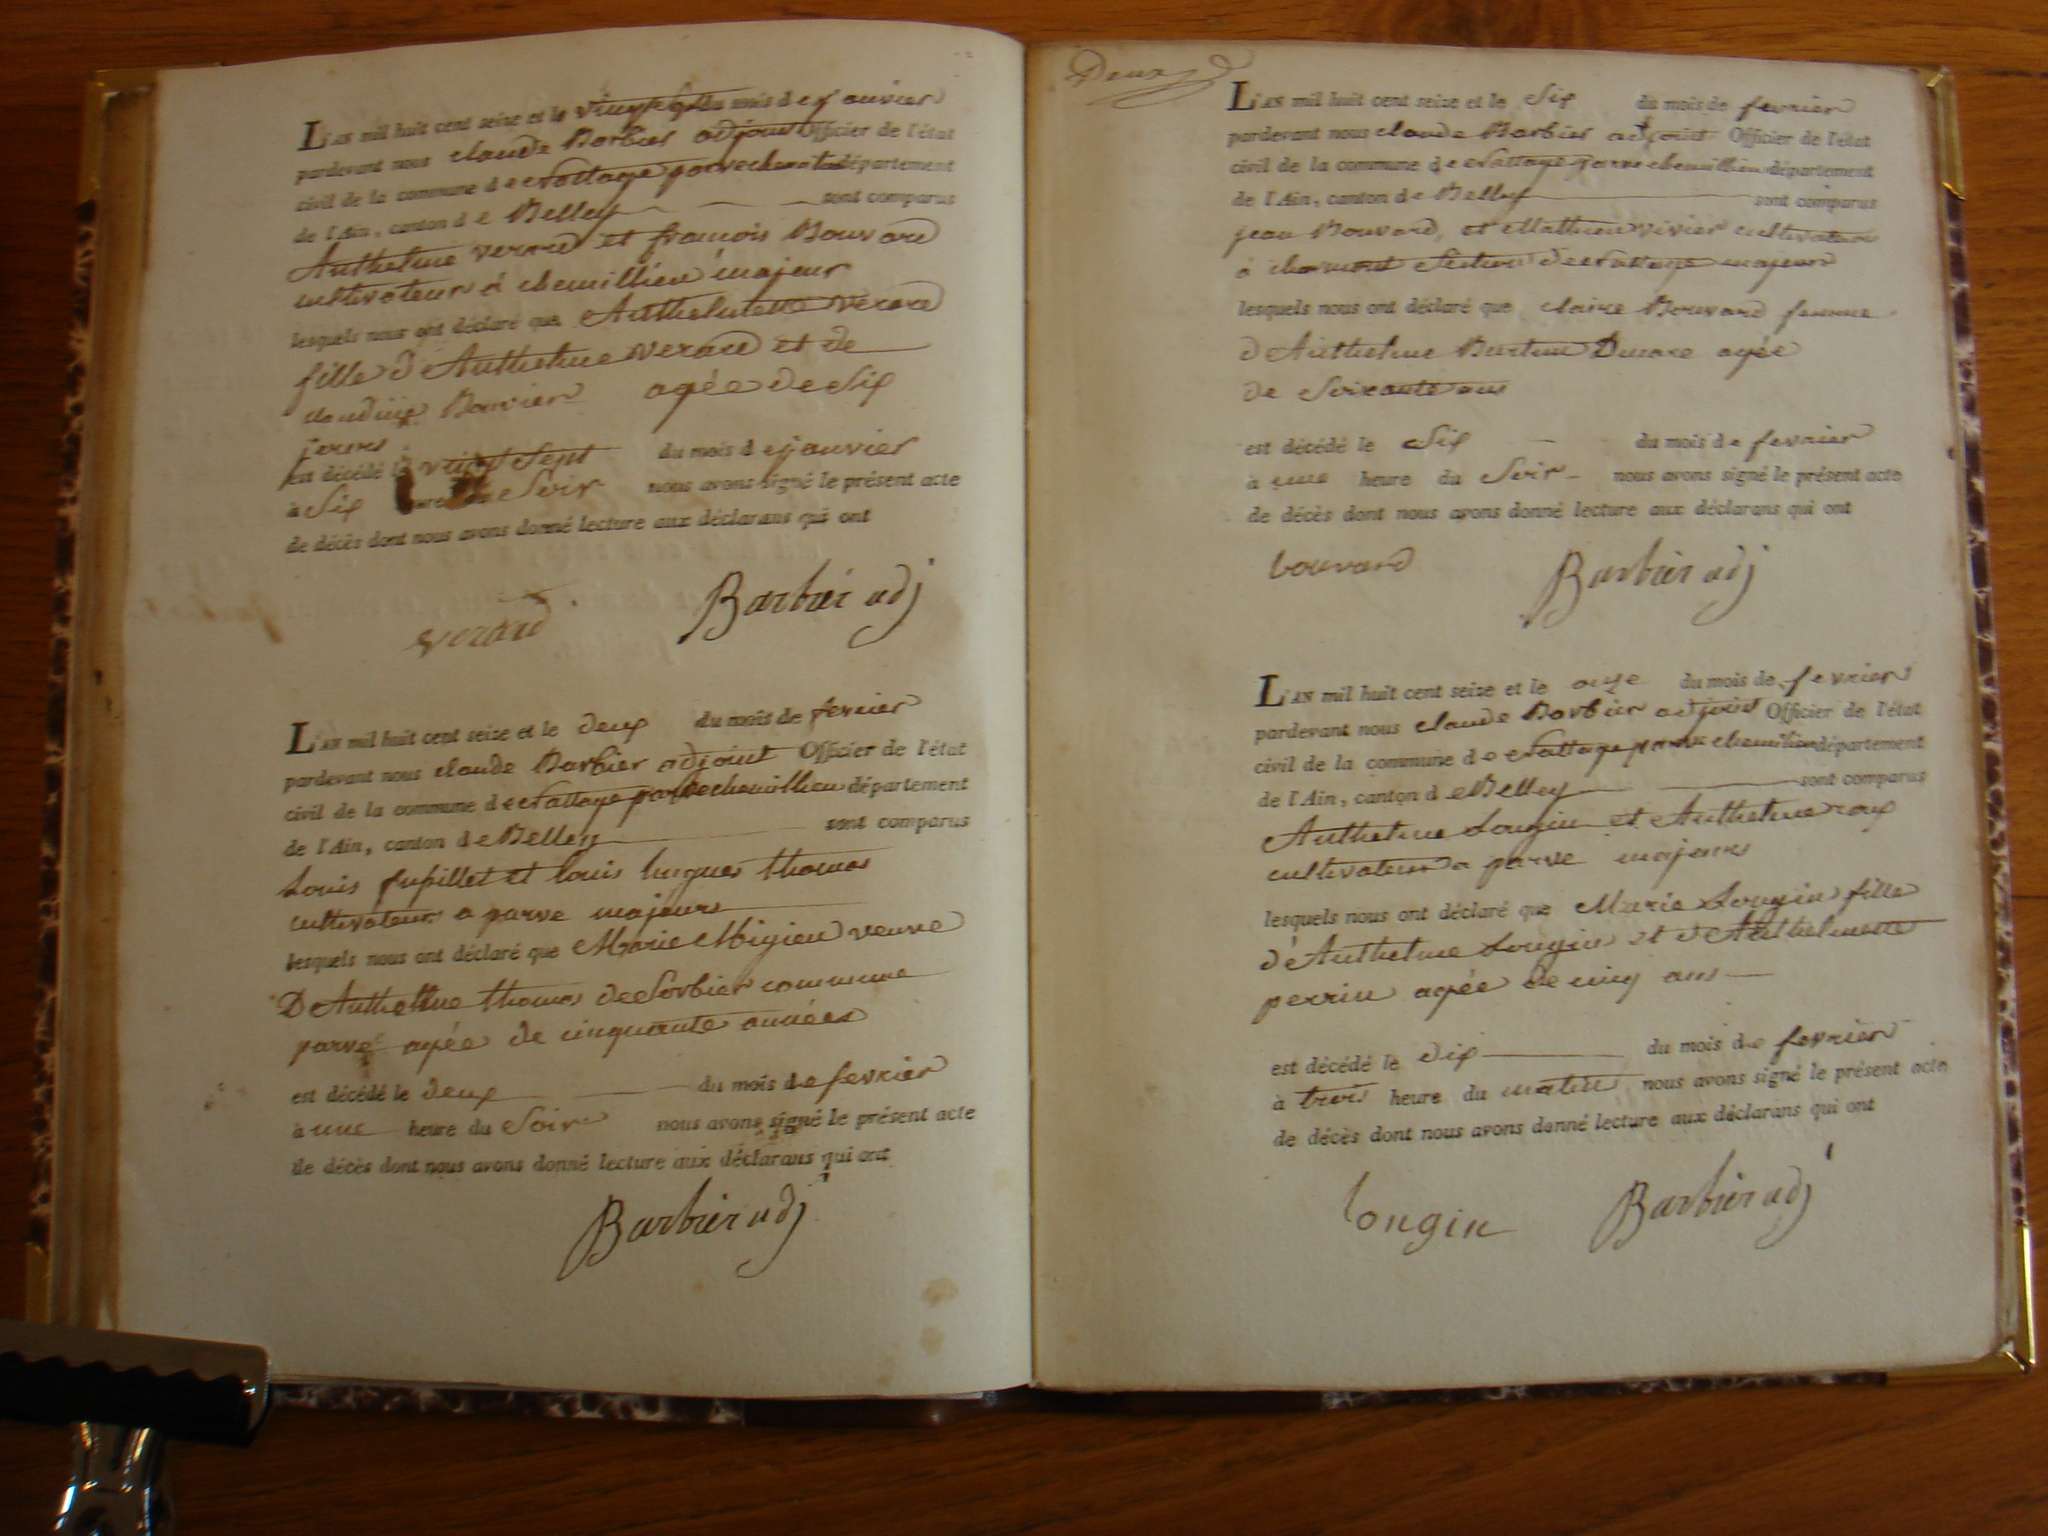 L'an mil huit cent seize et le du mois de janvier
pardevant nous claude Barbier adjoint Officier de l'état
civil de la commune de département
de l'Ain, canton de Belley sont comparus
Anthelme verard et francois Bouvard
cultivateurs à chemillieu majeur
lesquels nous ont déclaré que Anthelmette verard
fille d'Anthelme verard et de
claudine agée de six
jours
est décédé le vingt sept du mois de janvier
à six heure du soir nous avons signé le présent acte
de décès dont nous avons donné lecture aux déclarans qui ont
verard Barbier adj
L'an mil huit cent seize et le deux du mois de fevrier
pardevant nous claude Barbier adjoint Officier de l'état
civil de la commune de parve chemillieu département
de l'Ain, canton de Belley sont comparus
Louis et louis hugues thomas
cultivateurs a parve majeurs
lesquels nous ont déclaré que Marie Migieu veuve
D'Anthelme thomas de Sorbier commune
parve agée de cinquante années
est décédé le deux du mois de fevrier
à une heure du soir nous avons signé le présent acte
de décès dont nous avons donné lecture aux déclarans qui ont
Barbier adj
Deux
L'an mil huit cent seize et le six du mois de fevrier
pardevant nous claude Barbier adjoint Officier de l'état
civil de la commune de parve chemillieu département
de l'Ain, canton de Belley sont comparus
jean Bouvard, et Mathieu vivier cultivateurs
à majeurs
lesquels nous ont déclaré que claire Bouvard femme
d'Anthelme agée
de soixante ans
est décédé le six du mois de fevrier
à une heure du soir nous avons signé le présent acte
de décès dont nous avons donné lecture aux déclarans qui ont
bouvard Barbier adj
L'an mil huit cent seize et le onze du mois de fevrier
pardevant nous claude Barbier adjoint Officier de l'état
civil de la commune de parve chemilieu département
de l'Ain, canton de Belley sont comparus
Anthelme Longin et Anthelme roux
cultivateurs a parve majeurs
lesquels nous ont déclaré que Marie Longin fille
d'Anthelme Longin et d'Anthelmette
perrin agée de cinq ans
est décédé le dix du mois de fevrier
à trois heure du matin nous avons signé le présent acte
de décès dont nous avons donné lecture aux déclarans qui ont
longin Barbier adj